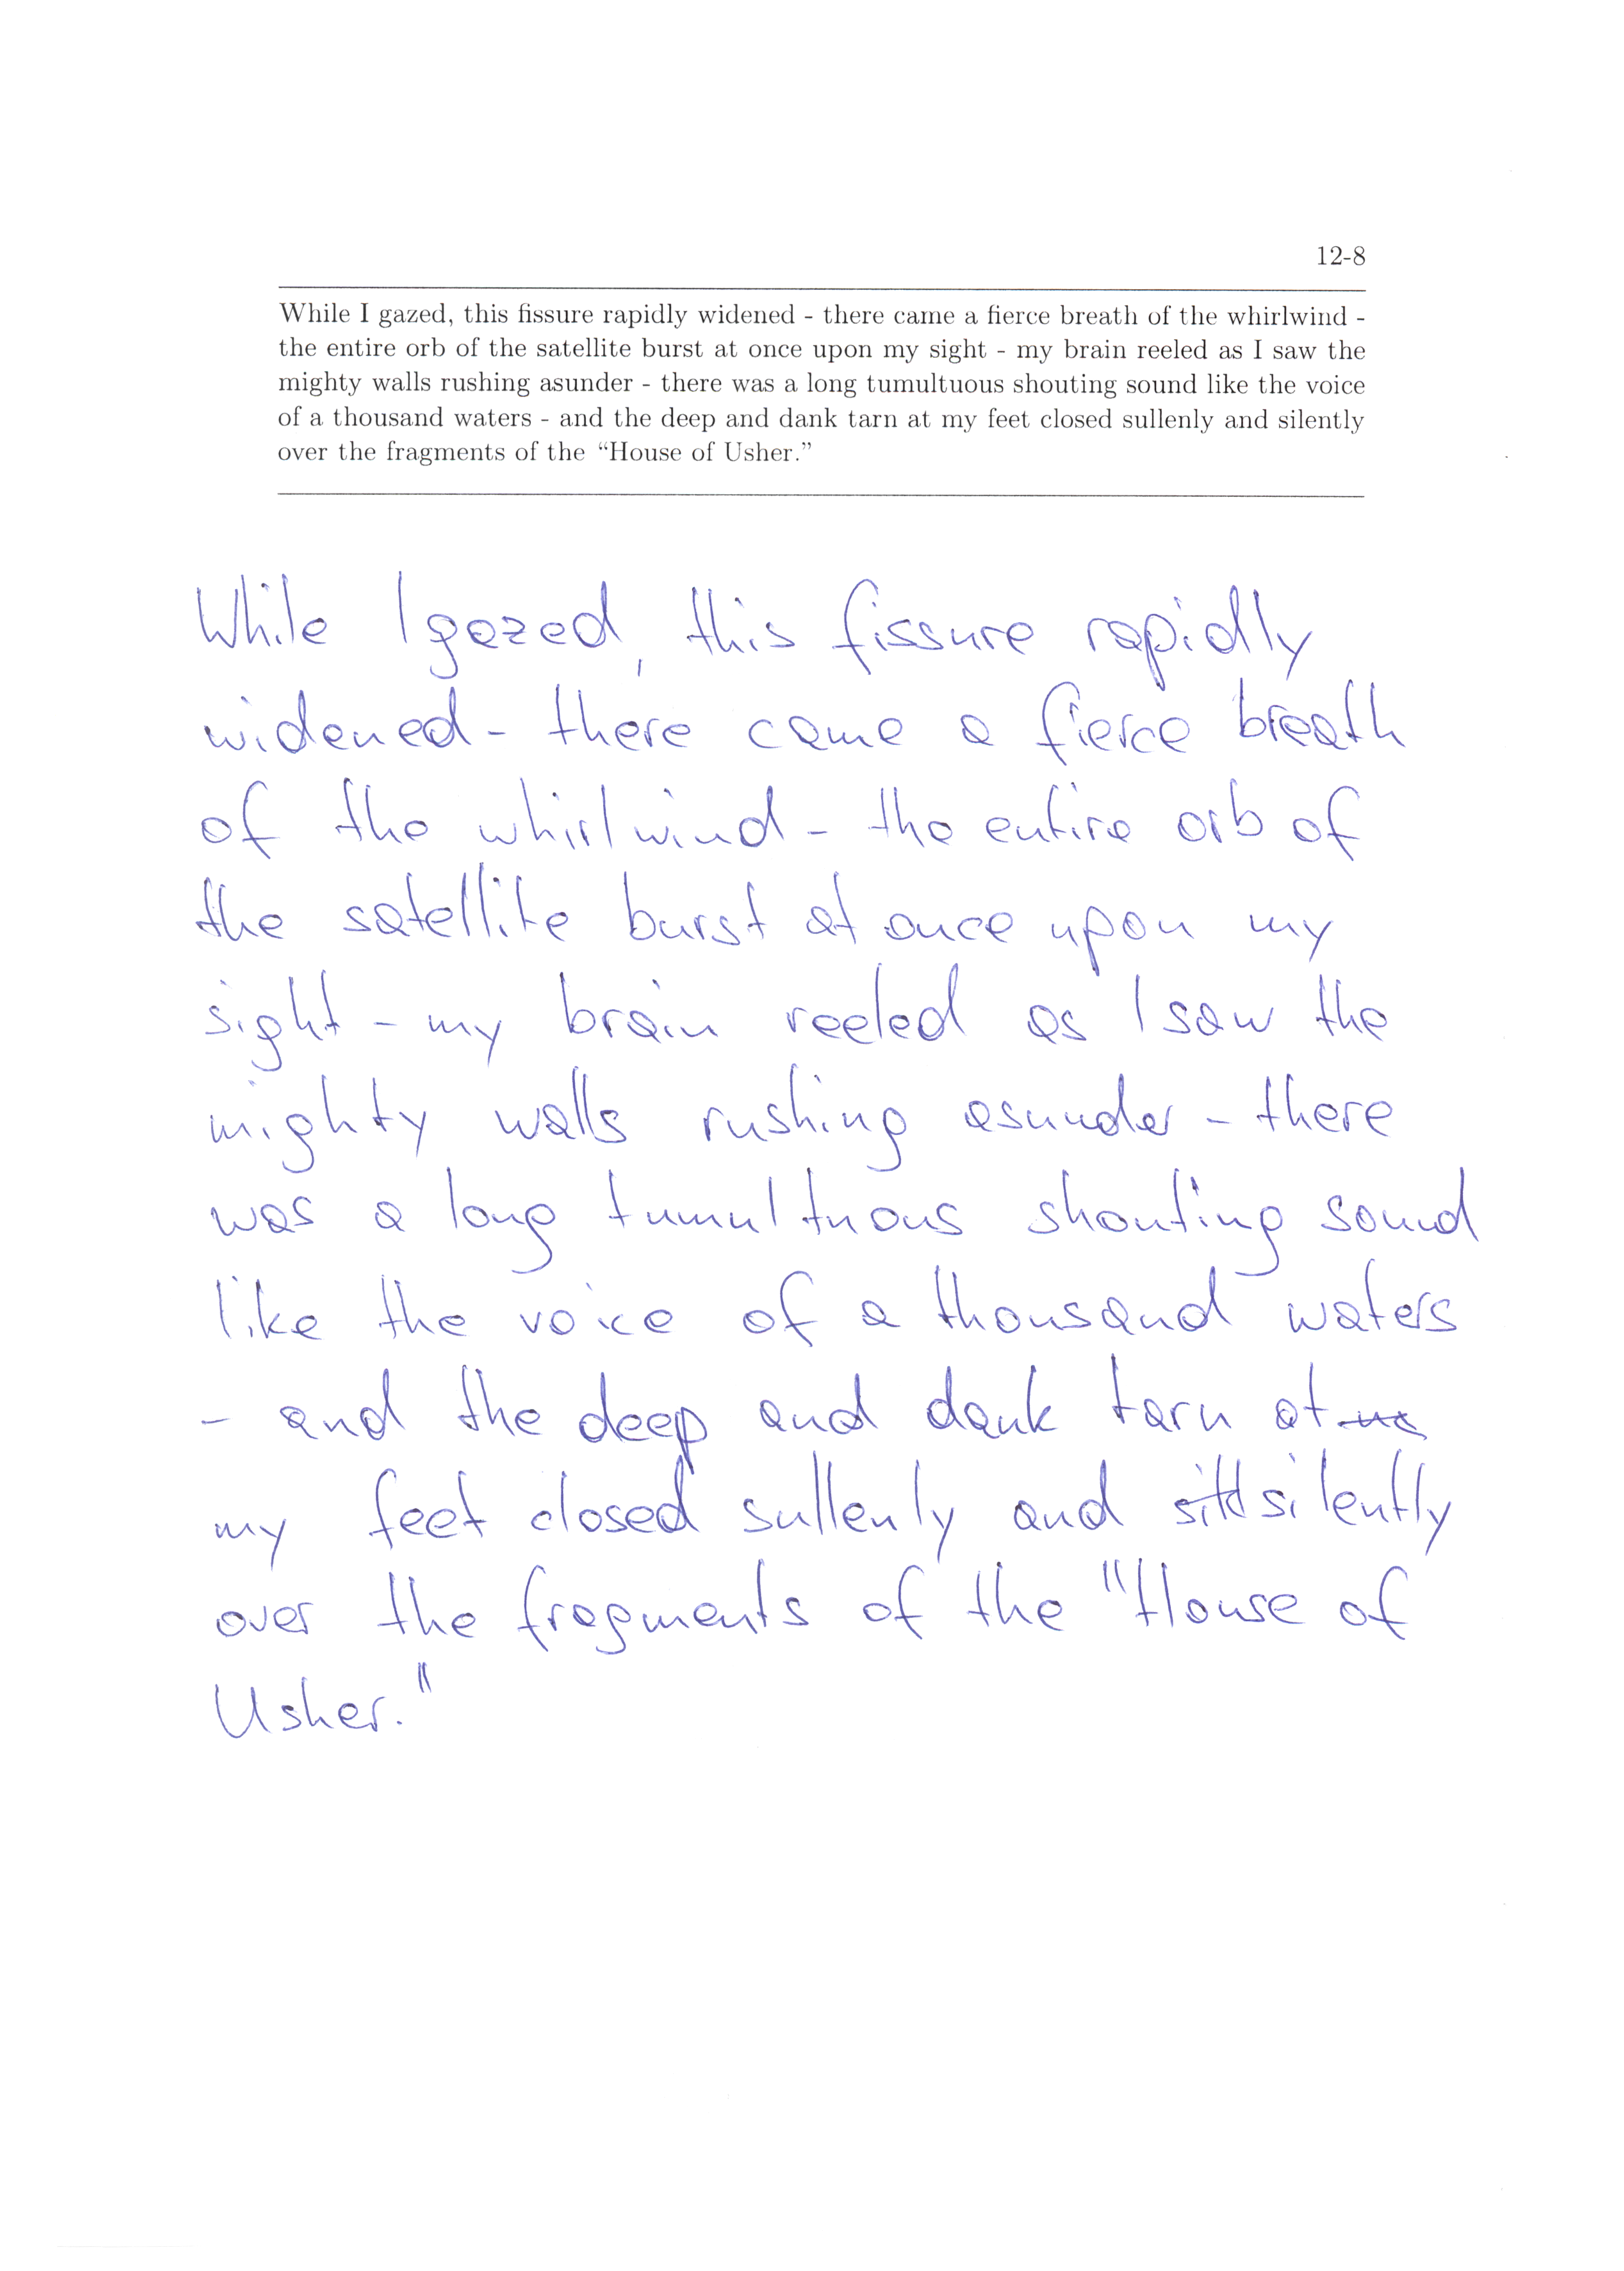 12-8
While I gazed, this fissure rapidly widened - there came a fierce breath of the whirlwind -
the entire orb of the satellite burst at once upon my sight - my brain reeled as I saw the
mighty walls rushing asunder - there was a long tumultuous shouting sound like the voice
of a thousand waters - and the deep and dank tarn at my feet closed sullenly and silently
over the fragments of the “House of Usher.”
While I gazed, this fissure rapidly
widened - there came a fierce breath
of the whirlwind - the entire orb of
the satellite burst at once upon my
sight - my brain reeled as I saw the
mighty walls rushing asunder - there
was a long tumultuous shouting sound
like the voice of a thousand waters
- and the deep and dank tarn at
my feet closed sullenly and silently
over the fragments of the "House of
Usher."